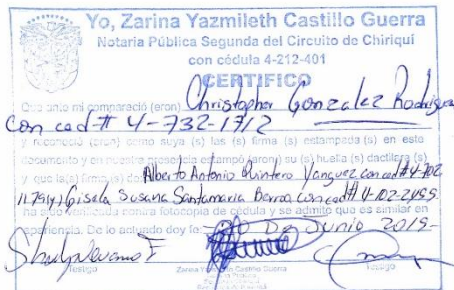 Yo, Zarina Yazmileth Castillo Guerra
Notaria Pública Segunda del Circuito de Chiriquí
con cédula 4-212-401
CERTIFICO
Que ante mi comparació (eron) Christopher Gonzalez Rodriguez
con ced # 4-732-1712
y reconoció (eron) como suya (s) las (s) firma (s) estampada (s) en este
documento y en nuestra presencia estampó (aron) su (s) huella (s) dactilera (s)
y que la(s) firma (s) Alberto Antonio Quintero Yanguez con ced # 4-702
Gisela Susana Santamaria con ced # 4-102-2455
ha sido verificada contra fotocopia de cédula y se admite que es similar en
apariencia. De lo actuado doy fe. De Junio 2015.
Testigo Zarina Yazmileth Castillo Guerra Testigo
Notaria Pública